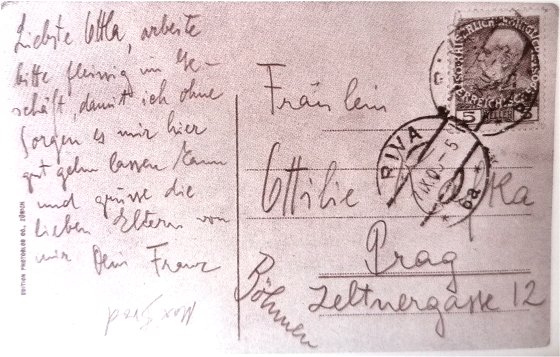 Liebste Ottla, arbeite
bitte fleissig im Ge-
schäft, damit ich ohne
Sorgen es mir hier
gut gehn lassen kann
und grüsse die
lieben Eltern von
mir Dein Franz
Max Brod
EDITION PHOTOGLOB CO., ZÜRICH
5
RIVA
IX 09
Fräulein
Ottilie Kafka
Prag
Zeltnergasse 12
Böhmen